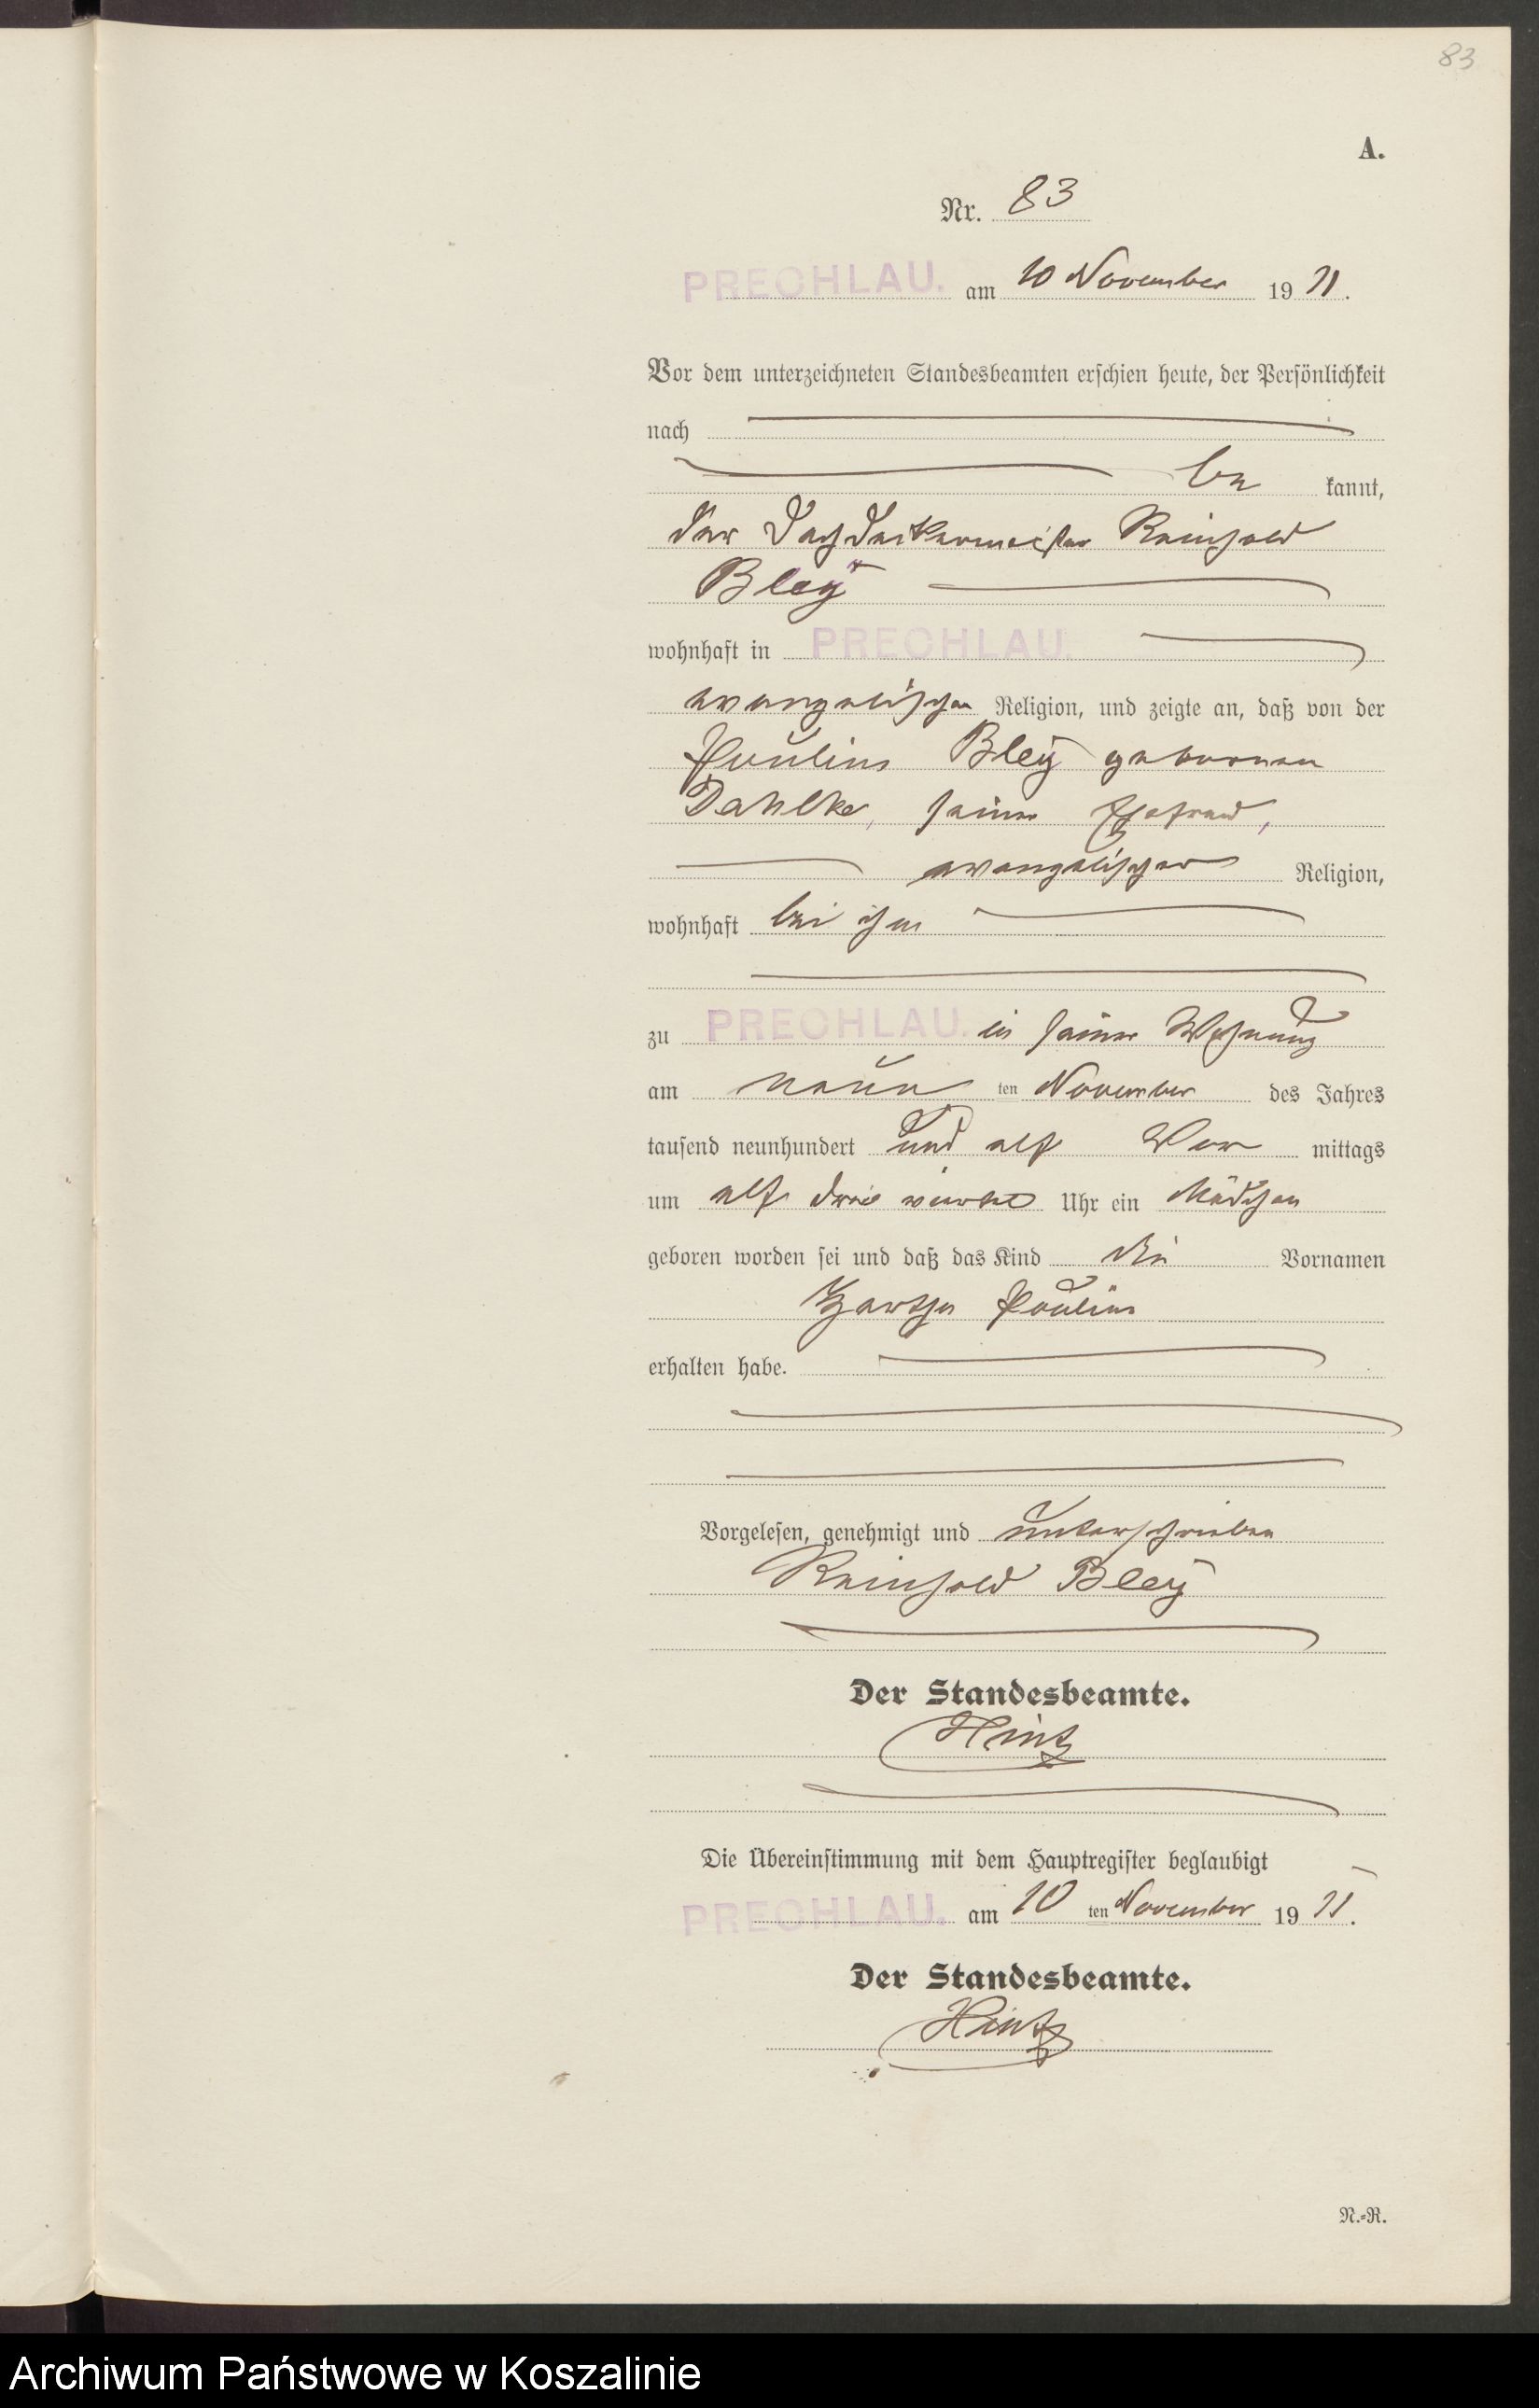 83
A.
Nr. 83
PRECHLAU. am 10 November 1911.
Vor dem unterzeichneten Standesbeamten erschien heute, der Persönlichkeit
nach
be kannt,
der Dachdeckermeister Reinhold
Bleÿ
wohnhaft in PRECHLAU.
evangelischen Religion, und zeigte an, daß von der
Pauline Bleÿ geborenen
Dahlke, seiner Ehefrau,
evangelischer Religion,
wohnhaft bei ihm
zu PRECHLAU. in seiner Wohnung
am neun ten November des Jahres
tausend neunhundert und elf Vor mittags
um elf drei viertel Uhr ein Mädchen
geboren worden sei und daß das Kind die Vornamen
Hertha Pauline
erhalten habe.
Vorgelesen, genehmigt und unterschrieben
Reinhold Bleÿ
Der Standesbeamte.
Hintz
Die Übereinstimmung mit dem Hauptregister beglaubigt
PRECHLAU. am 10 ten November 1911.
Der Standesbeamte.
Hintz
N.=R.
Archiwum Państwowe w Koszalinie